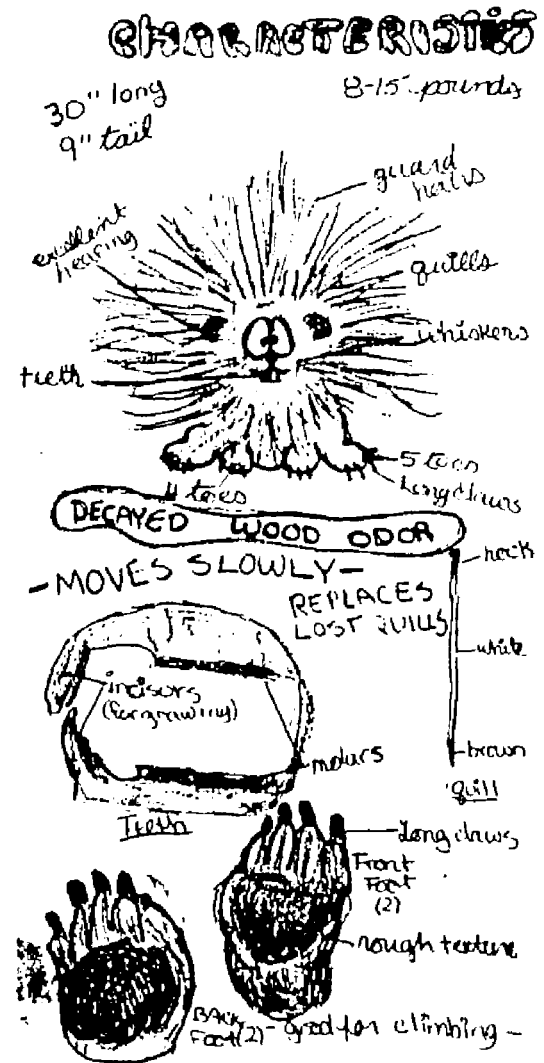 CHARACTERISTICS
30" long
9" tail
8-15 pounds
guard
hairs
excellent
hearing
quills
whiskers
teeth
5 toes
long claws
4 toes
DECAYED WOOD ODOR
-MOVES SLOWLY-
REPLACES
LOST QUILLS
white
incisors
(for gnawing)
brown
molars
quill
Teeth
Long claws
Front
Foot
(2)
rough texture
BACK
Foot (2) - good for climbing -